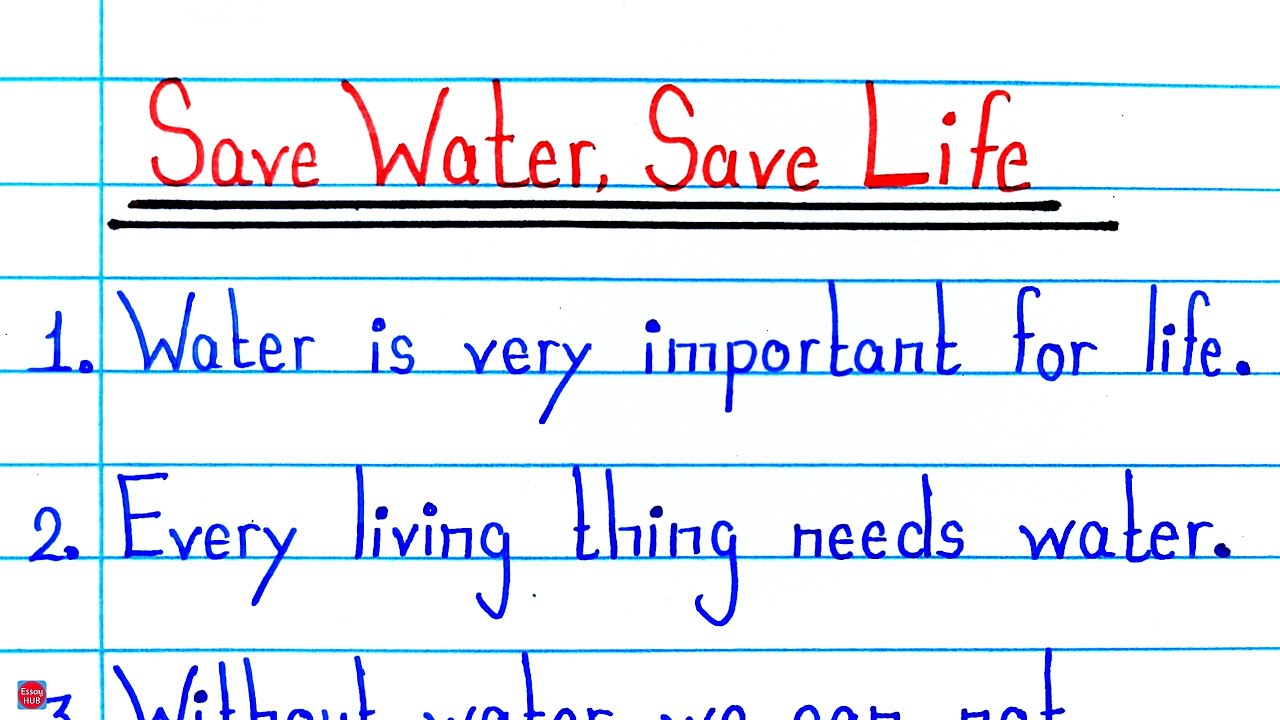 Save Water, Save Life
1. Water is very important for life.
2. Every living thing needs water.
3. Without water we can not
Essay HUB